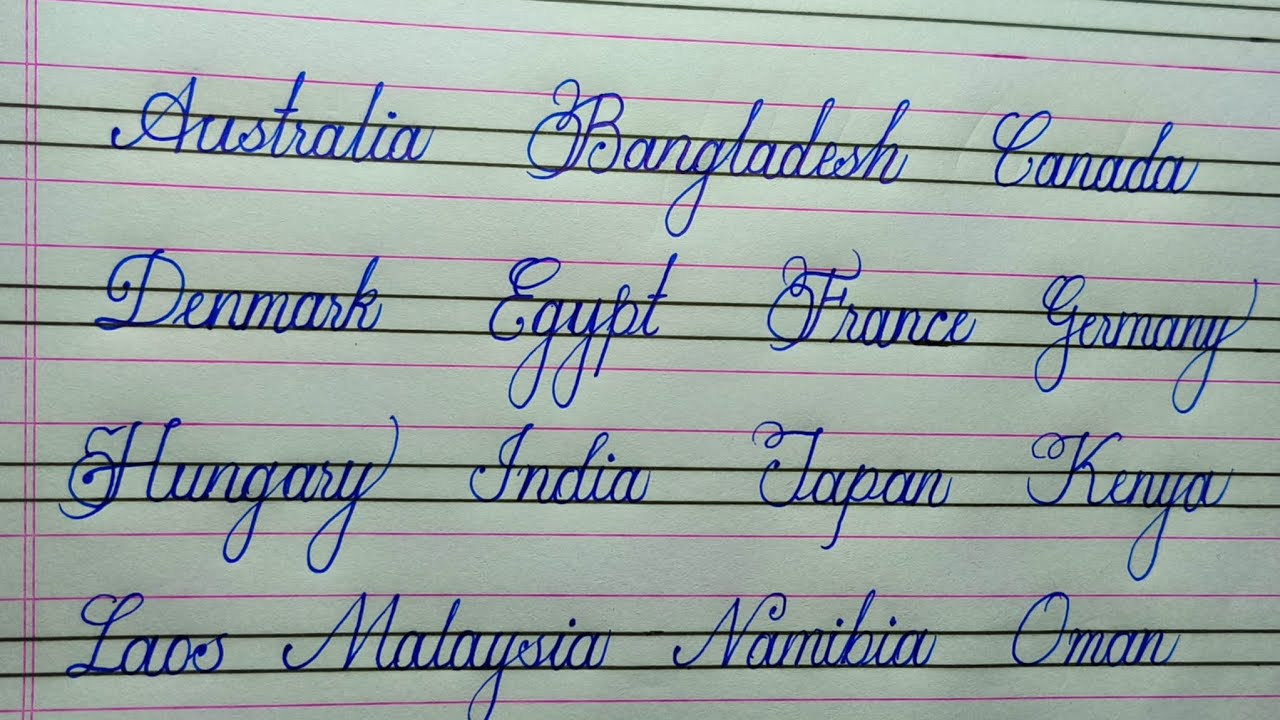 Australia Bangladesh Canada
Denmark Egypt France Germany
Hungary India Japan Kenya
Laos Malaysia Namibia Oman